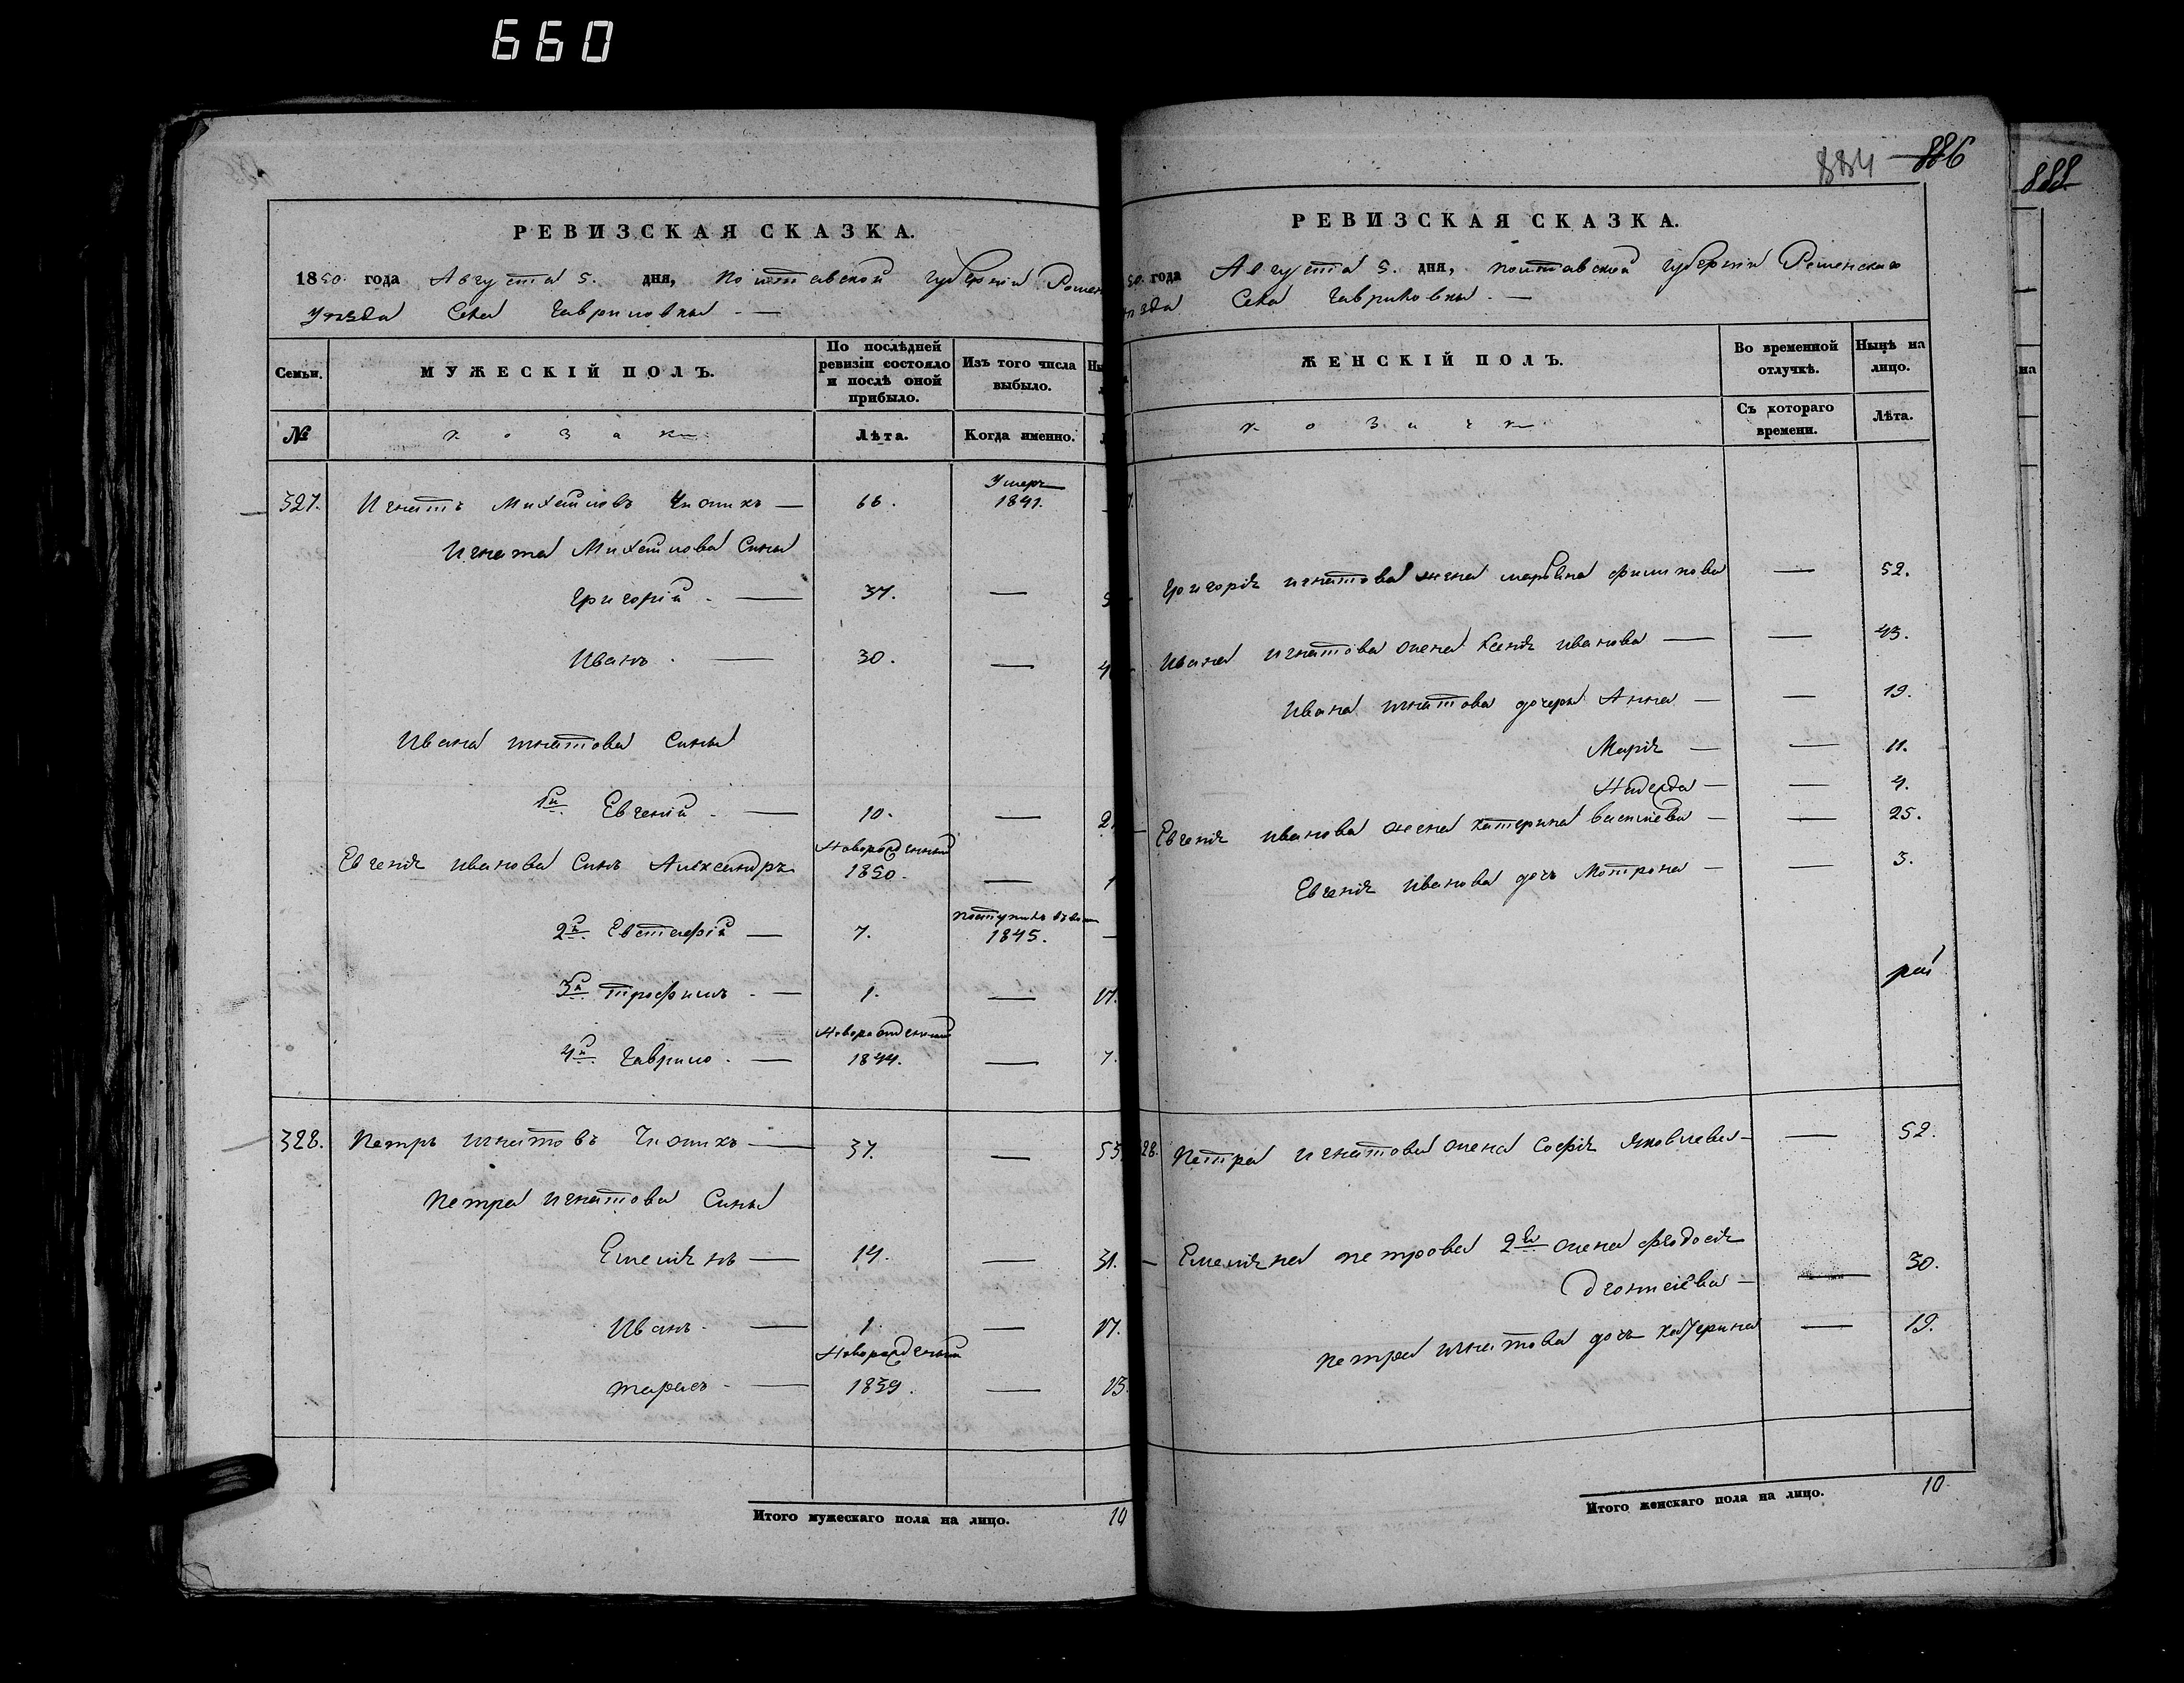 660
РЕВИЗСКАЯ СКАЗКА.
1850. года Августа 5. дня, Полтавской губерніи Ромен
Уѣзда Села Гавриловки. —
Семьи.
МУЖЕСКІЙ ПОЛЪ.
По послѣдней ревизіи состояло и послѣ оной прибыло.
Изъ того числа выбыло.
№
козаки
Лѣта.
Когда именно.
327. Игнатъ Михайловъ — 66. Умеръ 1841.
Игната Михайлова Сины
Григорій. — 37. —
Иванъ. — 30. —
Ивана Игнатова Сины
1й Евгений. — 10. — 2
Евгенія Иванова Синъ Александръ Новорожденный 1850. — 1
2й. Евстафій — 7. поступилъ 1845. —
3й. Трофимъ. — 1. — 17.
4й. Гаврило. — Новорожденный 1844. — 7.
328. Петръ Игнатовъ — 37. — 53
Петра Игнатова Сины
Емеліянъ — 14. — 31.
Иванъ. — 1. — 17.
Тарасъ. — Новорожденный 1839. — 13.
Итого мужескаго пола на лицо. 10
884 886
888
РЕВИЗСКАЯ СКАЗКА.
50. года Августа 5. дня, Полтавской губерніи Роменскаго
зда Села Гавриловки. —
ЖЕНСКІЙ ПОЛЪ.
Во временной отлучкѣ.
Нынѣ на лицо.
на
козачки
Съ котораго времени.
Лѣта.
Григорія Игнатова жена Марфина Филипова — 52.
Ивана Игнатова жена Ксенія Иванова — — 43.
Ивана Игнатова дочери Анна — — 19.
Марія — — 11.
Надежда — — 4.
Евгенія Иванова жена Катерина Василіева — — 25.
Евгенія Иванова дочь Мотрона — — 3.
28. Петра Игнатова жена Софія Яковлева — — 52.
Емеліяна Петрова 2я жена Феодосія
— — 30.
Петра Игнатова дочь Катерина — 19.
Итого женскаго пола на лицо. 10